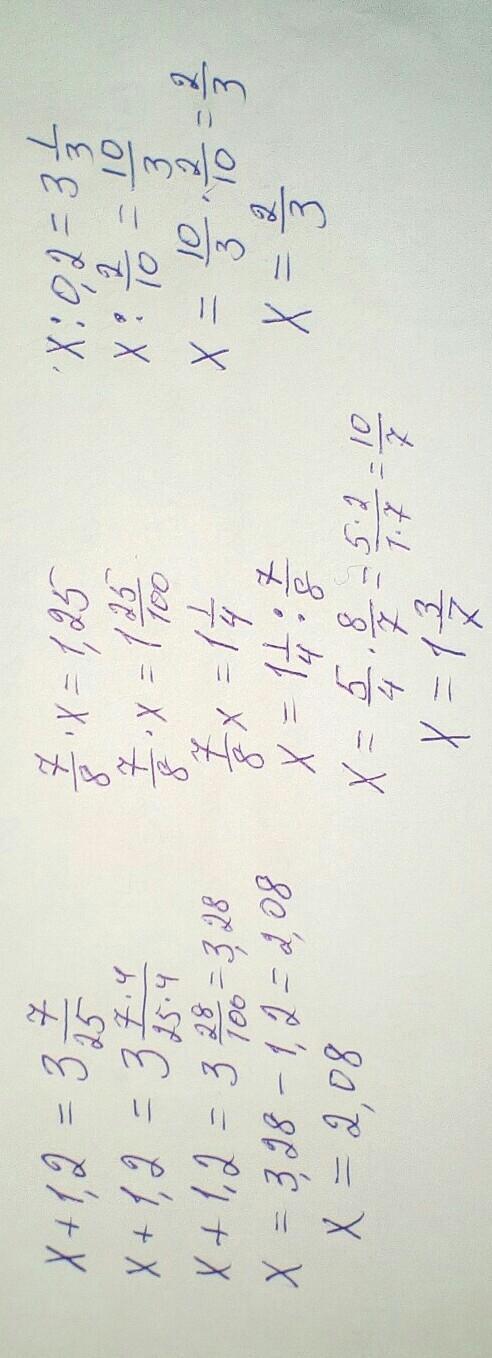 x + 1,2 = 3 7/25
x + 1,2 = 3 7·4/25·4
x + 1,2 = 3 28/100 = 3,28
x = 3,28 - 1,2 = 2,08
x = 2,08
7/8 · x = 1,25
7/8 · x = 1 25/100
7/8 x = 1 1/4
x = 1 1/4 : 7/8
x = 5/4 · 8/7 = 5·2/1·7 = 10/7
x = 1 3/7
x : 0,2 = 3 1/3
x : 2/10 = 10/3
x = 10/3 · 2/10 = 2/3
x = 2/3